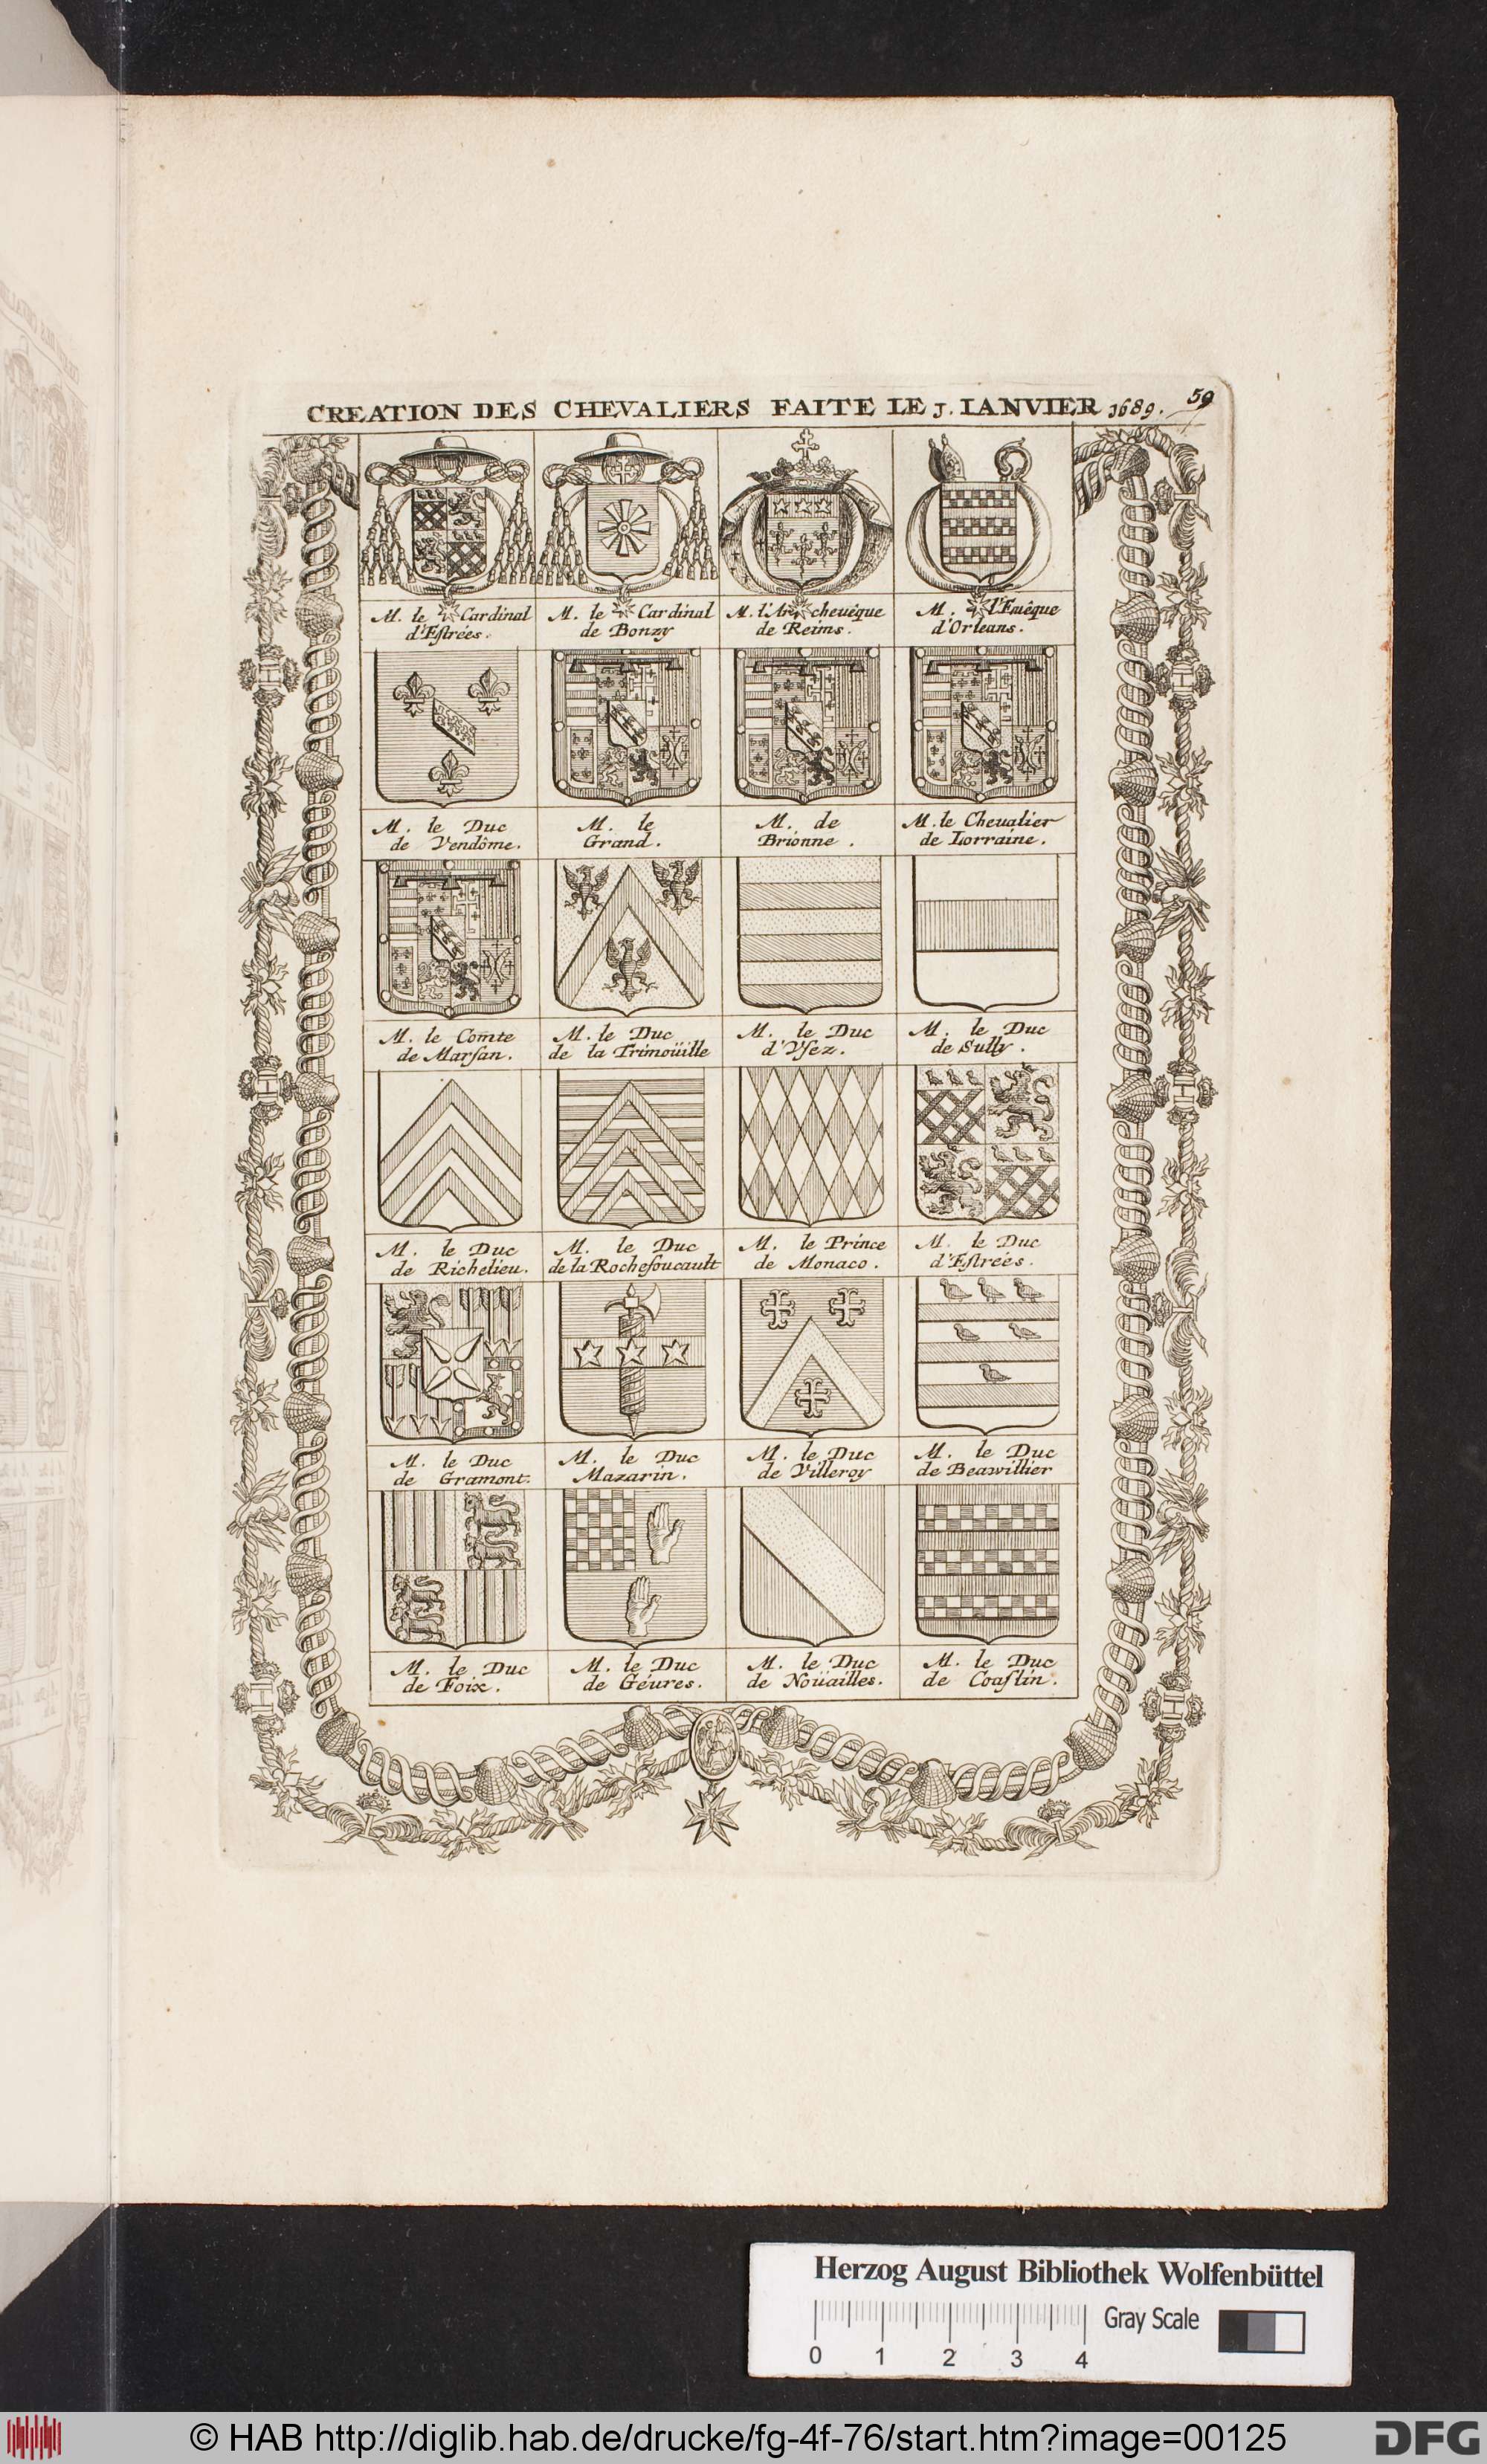 59
CREATION DES CHEVALIERS FAITE LE J. IANVIER 1689.
M. le Cardinal
d'Estrées.
M. le Cardinal
de Bonzy
M. l'Archeuêque
de Reims.
M. l'Euêque
d'Orleans.
M. le Duc
de Vendôme.
M. le
Grand.
M. de
Brionne.
M. le Cheualier
de Lorraine.
M. le Comte
de Marsan.
M. le Duc
de la Trimoüille
M. le Duc
d'Vsez.
M. le Duc
de Sully.
M. le Duc
de Richelieu.
M. le Duc
de la Rochefoucault
M. le Prince
de Monaco.
M. le Duc
d'Estrées.
M. le Duc
de Gramont.
M. le Duc
Mazarin.
M. le Duc
de Villeroy
M. le Duc
de Beauvillier
M. le Duc
de Foix.
M. le Duc
de Géures.
M. le Duc
de Noüailles.
M. le Duc
de Coaslin.
Herzog August Bibliothek Wolfenbüttel
Gray Scale
0 1 2 3 4
© HAB http://diglib.hab.de/drucke/fg-4f-76/start.htm?image=00125
DFG